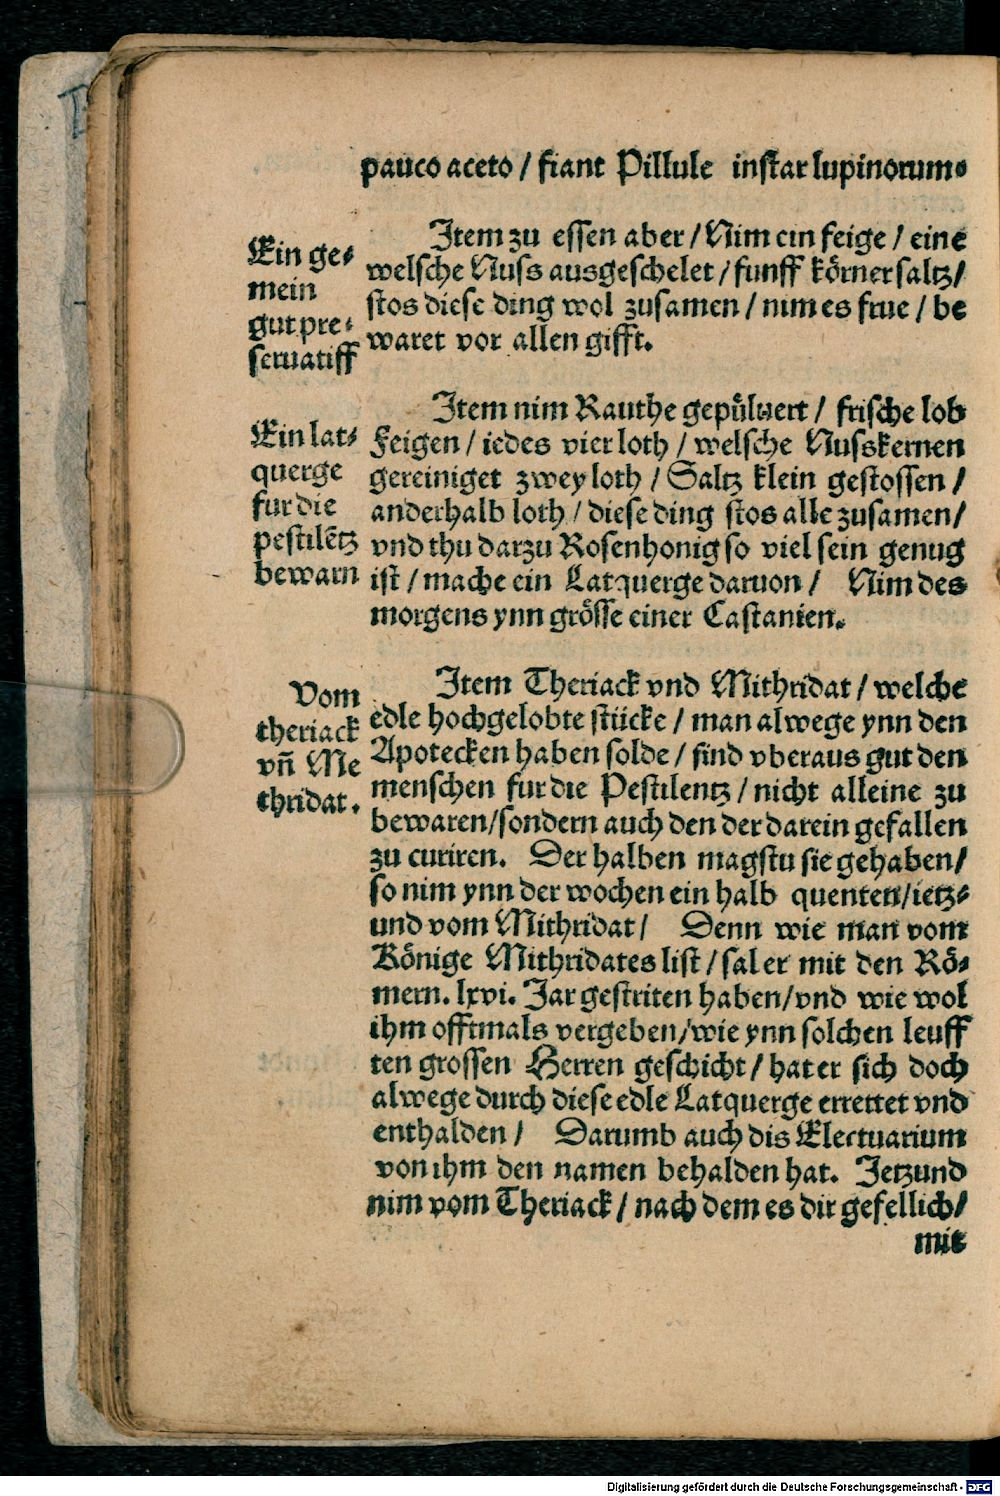 pauco aceto / fiant Pillule instar lupinorum.
Ein ge⸗
mein
gut pre⸗
seruatiff
Item zu essen aber / Nim ein feige / eine
welsche Nuss ausgeschelet / funff körner saltz /
stos diese ding wol zusamen / nim es frue / be
waret vor allen gifft.
Ein lat⸗
querge
fur die
pestilētz
bewarn
Item nim Rauthe gepüluert / frische lob
Feigen / iedes vier loth / welsche Nusskernen
gereiniget zwey loth / Saltz klein gestossen /
anderhalb loth / diese ding stos alle zusamen /
vnd thu darzu Rosenhonig so viel sein genug
ist / mache ein Latquerge daruon / Nim des
morgens ynn grösse einer Castanien.
Vom
theriack
vñ Me
thridat.
Item Theriack vnd Mithridat / welche
edle hochgelobte stücke / man alwege ynn den
Apotecken haben solde / sind vberaus gut den
menschen fur die Pestilentz / nicht alleine zu
bewaren / sondern auch den der darein gefallen
zu curiren. Der halben magstu sie gehaben /
so nim ynn der wochen ein halb quenten / ietz⸗
und vom Mithridat / Denn wie man vom
Könige Mithridates list / sal er mit den Rö⸗
mern. lxvi. Jar gestriten haben / vnd wie wol
ihm offtmals vergeben / wie ynn solchen leuff
ten grossen Herren geschicht / hat er sich doch
alwege durch diese edle Latquerge errettet vnd
enthalden / Darumb auch dis Electuarium
von ihm den namen behalden hat. Jetzund
nim vom Theriack / nach dem es dir gefellich /
mit
Digitalisierung gefördert durch die Deutsche Forschungsgemeinschaft - DFG